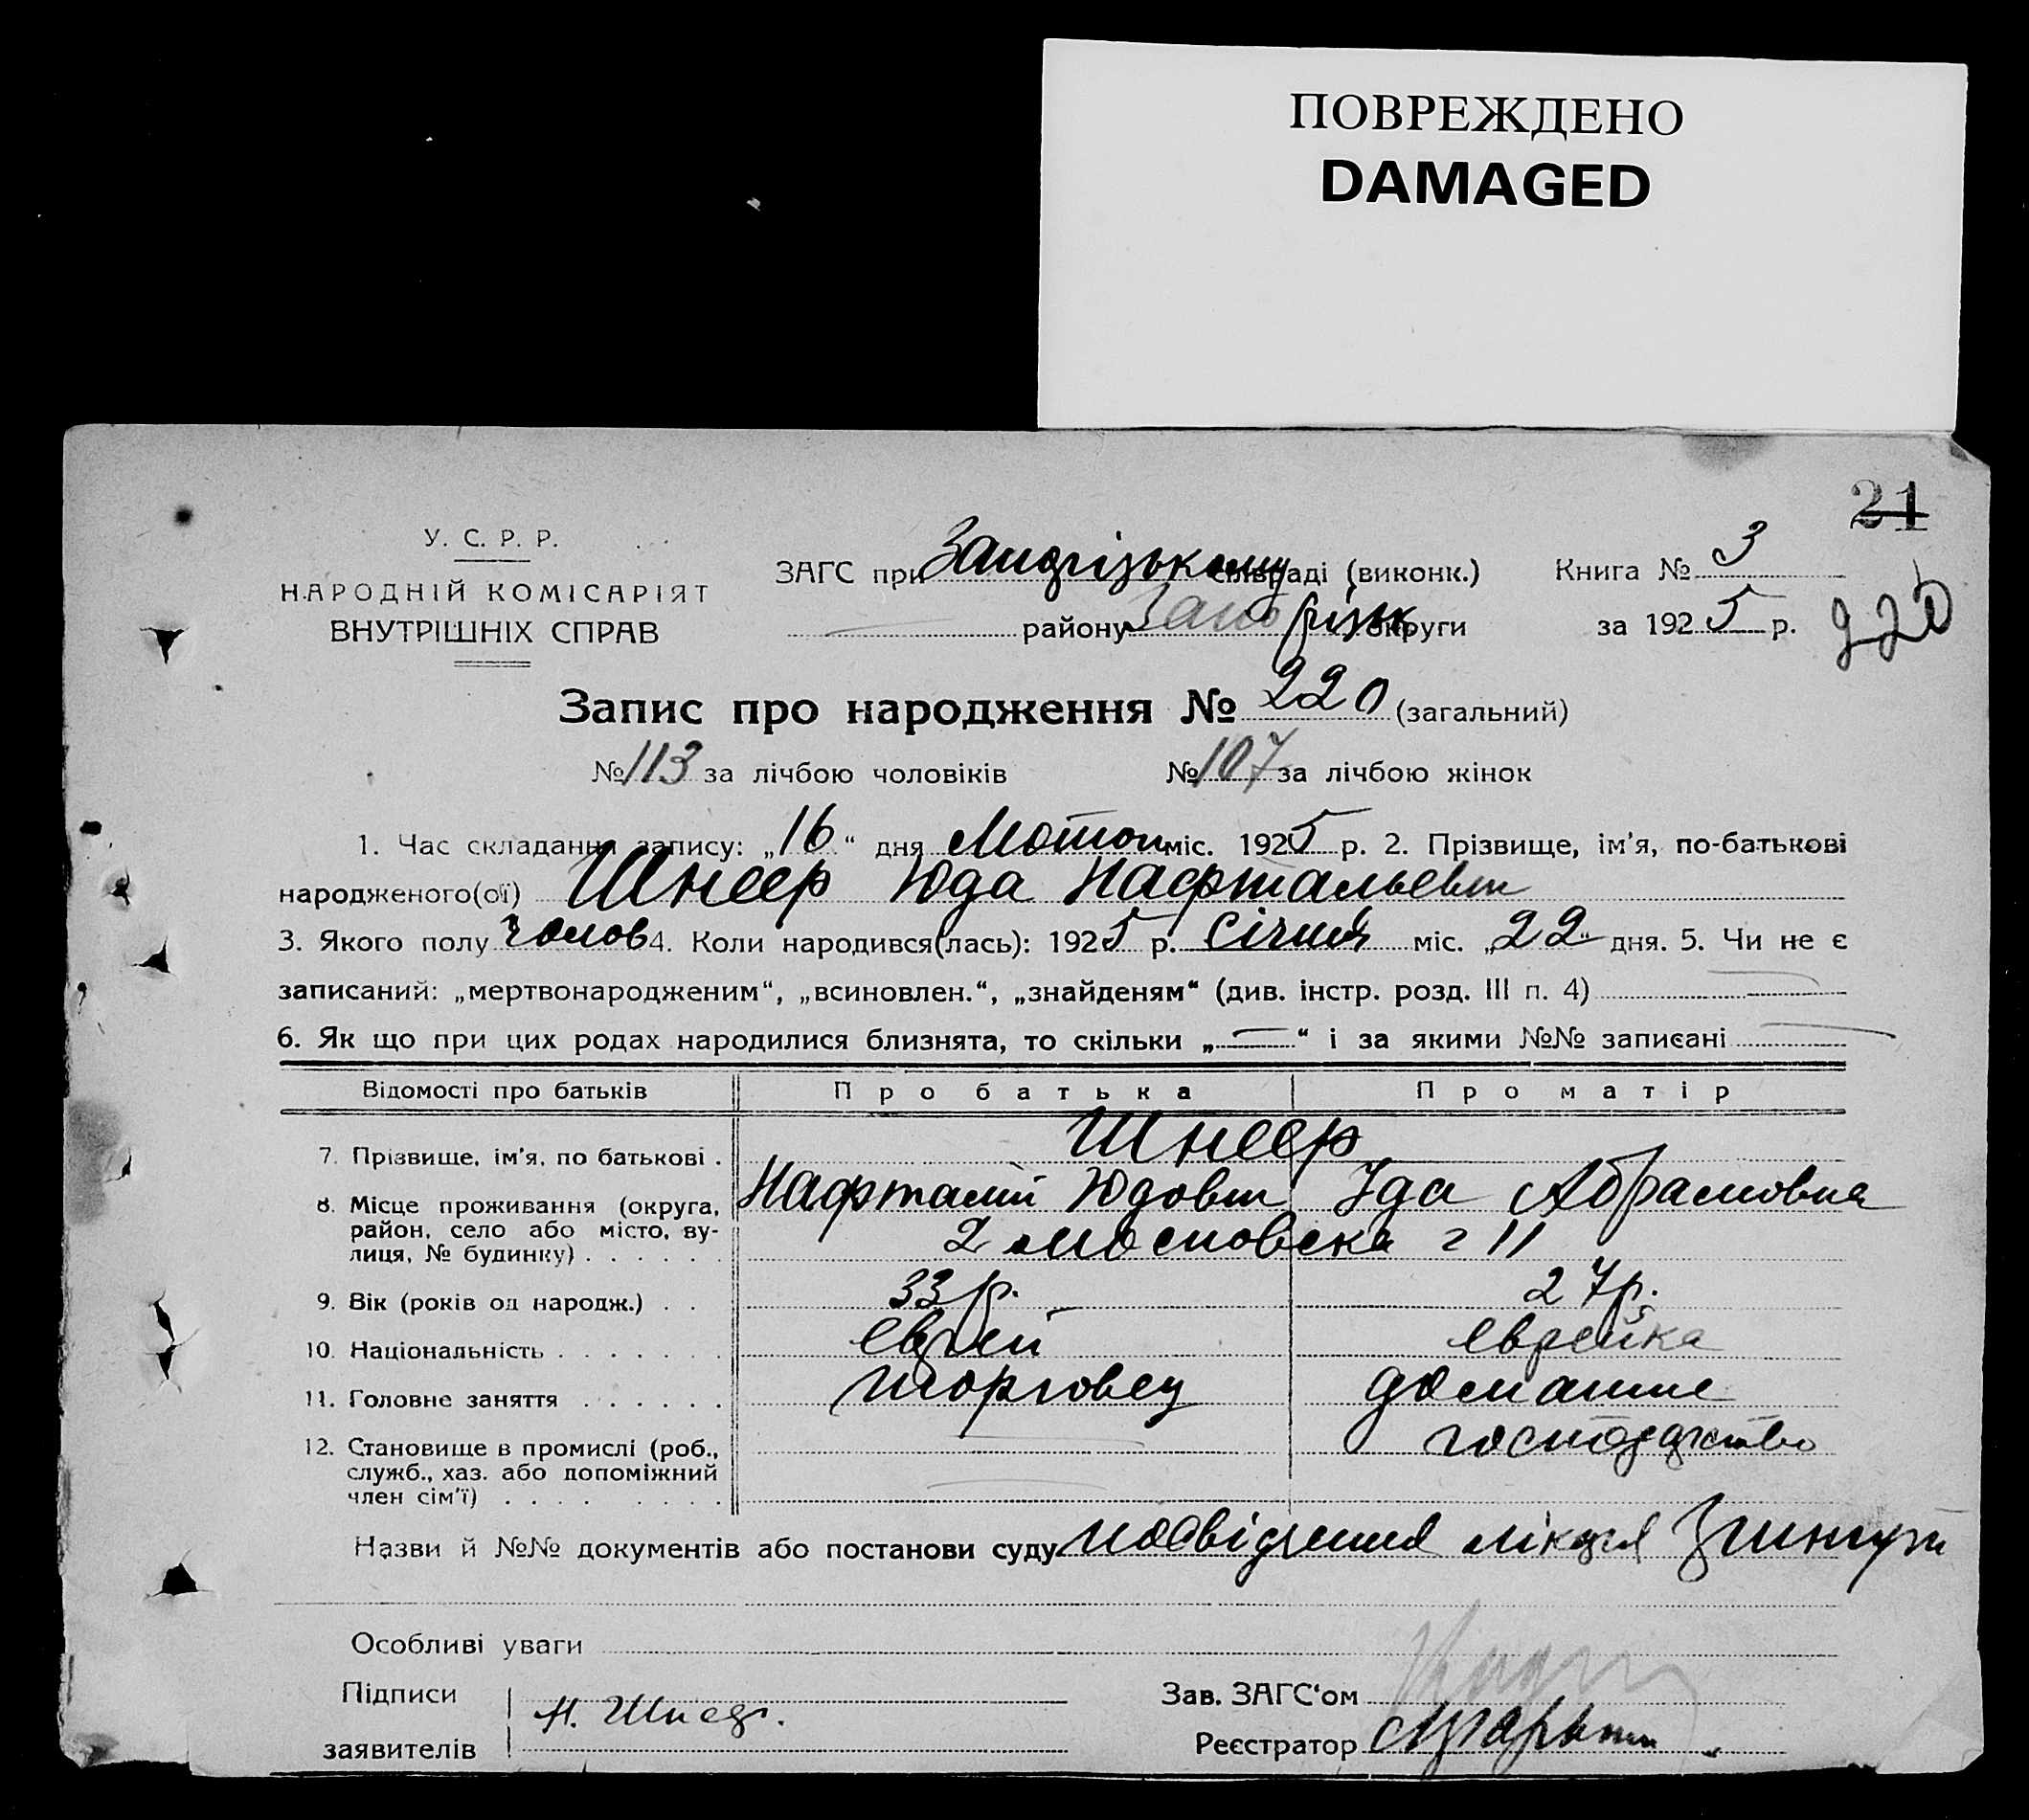 ПОВРЕЖДЕНО
DAMAGED
21
У. С. Р. Р.
НАРОДНІЙ КОМІСАРІЯТ
ВНУТРІШНІХ СПРАВ
ЗАГС при Запорізькому сільраді (виконк.) Книга № 3
району Запоріжк округи за 1925 р.
220
Запис про народження № 220 (загальний)
№ 113 за лічбою чоловіків № 107 за лічбою жінок
1. Час складання запису: „16“ дня Лютого міс. 1925 р. 2. Прізвище, ім'я, по-батькові
народженого(ої) Шнеер Юда Нафтальевич
3. Якого полу чолов 4. Коли народився(лась): 1925 р. Січня міс. „22“ дня. 5. Чи не є
записаний: „мертвонародженим“, „всиновлен.“, „знайденям“ (див. інстр. розд. III п. 4)
6. Як що при цих родах народилися близнята, то скільки „—“ і за якими №№ записані —
Відомості про батьків Про батька Про матір
7. Прізвище, ім'я, по батькові . Шнеер
Нафталий Юдович Іда Абрамовна
8. Місце проживання (округа,
район, село або місто, ву-
лиця, № будинку) . . . . . . 11
9. Вік (років од народж.) . . 33 р. 27 р.
10. Національність . . . . . . . еврей еврейка
11. Головне заняття . . . . . . торговец домашнє
господарство
12. Становище в промислі (роб.,
служб., хаз. або допоміжний
член сім'ї) . . . . . . . .
Назви й №№ документів або постанови суду посвідчення лікаря
Особливі уваги
Підписи
заявителів Н. Шнеер.
Зав. ЗАГС'ом
Реєстратор